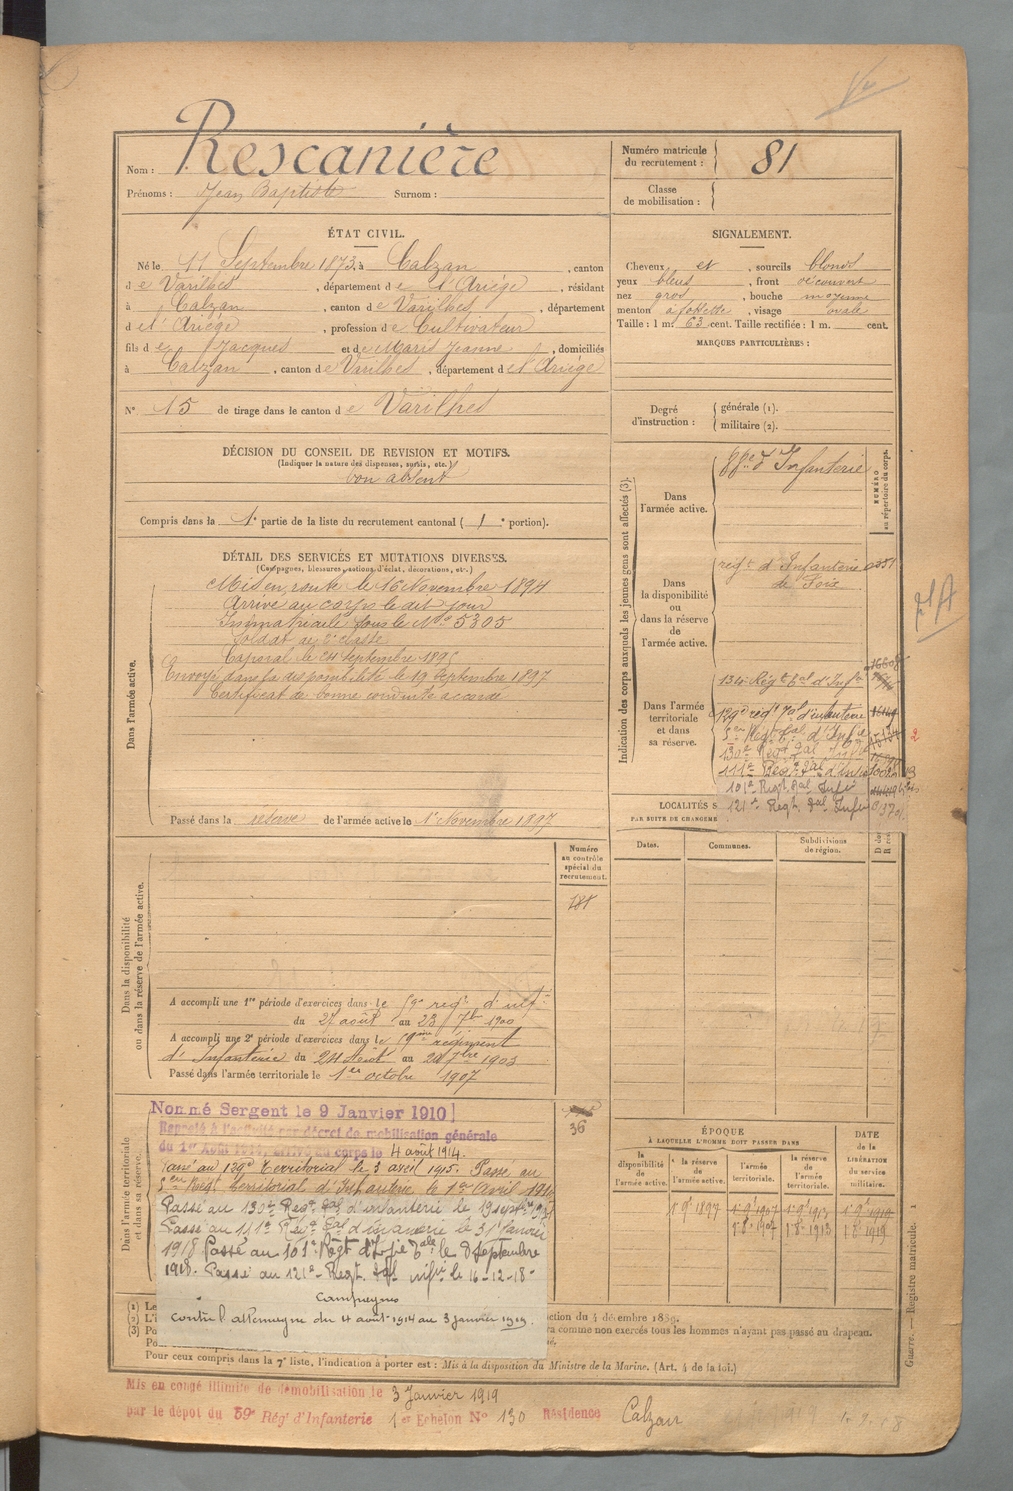 Nom : Rescanière
Prénoms : Jean Baptiste Surnom :
Numéro matricule du recrutement : 81
Classe de mobilisation :
ÉTAT CIVIL.
Né le 11 Septembre 1873, à Calzan, canton
de Varilhes, département de l'Ariège, résidant
à Calzan, canton de Varilhes, département
d el'Ariège, profession de Cultivateur
fils de Jacques et de Marie Jeanne, domiciliés
à Calzan, canton de Varilhes, département de l'Ariège
N° 15 de tirage dans le canton de Varilhes
SIGNALEMENT.
Cheveux et, sourcils blonds
yeux bleus, front découvert
nez gros, bouche moyenne
menton à fossette, visage ovale
Taille : 1 m. 63 cent. Taille rectifiée : 1 m. cent.
MARQUES PARTICULIÈRES :
Degré d'instruction : générale (1).
militaire (2).
DÉCISION DU CONSEIL DE REVISION ET MOTIFS.
(Indiquer la nature des dispenses, sursis, etc.)
bon absent
Compris dans la 1e partie de la liste du recrutement cantonal ( 1e portion).
DÉTAIL DES SERVICES ET MUTATIONS DIVERSES.
(Campagnes, blessures, actions d'éclat, décorations, etc.)
Dans l'armée active.
Mis en route le 16 Novembre 1894
Arrivé au corps le dit jour
Immatriculé sous le No 5305
Soldat de 2e classe
Caporal le 24 septembre 1895
Envoyé dans la disponibilité le 19 Septembre 1897
Certificat de bonne conduite accordé
Passé dans la réserve de l'armée active le 1er Novembre 1897
Indication des corps auxquels les jeunes gens sont affectés (3).
NUMÉRO au répertoire du corps.
Dans l'armée active.
d'Infanterie
Dans la disponibilité ou dans la réserve de l'armée active.
regt d'Infanterie
de Foix
Dans l'armée territoriale et dans sa réserve.
Régt tal d'Infie
129e régt Tal d'infanterie
5en Régt tal d'Infie
130e Régt Tal Infie
111e Regt Tal d'Infie
101e Regt Tal Infie
121e Regt Tal Infie
LOCALITÉS S
PAR SUITE DE CHANGEME
Dates. Communes. Subdivisions de région.
Dans la disponibilité ou dans la réserve de l'armée active.
Numéro au contrôle spécial du recrutement.
A accompli une 1re période d'exercices dans le 59e regt d'inf
du 27 août au 23 7bre 1900
A accompli une 2e période d'exercices dans le 59ème régiment
d'Infanterie du 24 Août au 20 7bre 1903
Passé dans l'armée territoriale le 1er octobre 1907
Dans l'armée territoriale et dans sa réserve.
36
Nommé Sergent le 9 Janvier 1910
Rappelé à l'activité par décret de mobilisation générale
du 1er Août 1914, arrivé au corps le 4 août 1914.
Passé au 129e territorial le 3 avril 1915. Passé au
5en Régt territorial d'Infanterie le 1er Avril 1916
Passé au 130e Regt Tal d'infanterie le 19 septbre 1917
Passé au 111e Régt Tal d'infanterie le 31 Janvier
1918. Passé au 101e Régt d'Infie Tale le 8 Septembre
1918. Passé au 121e Regt Tal infie le 16-12-18-
Campagnes
contre l'allemagne du 4 août 1914 au 3 janvier 1919.
ÉPOQUE
À LAQUELLE L'HOMME DOIT PASSER DANS
la disponibilité de l'armée active. la réserve de l'armée active. l'armée territoriale. la réserve de l'armée territoriale.
DATE de la LIBÉRATION du service militaire.
1 9bre 1897 1 9bre 1907 1 9bre 1913 1 9bre 1919
1 8bre 1907 1 8bre 1913 1 8bre 1919
(1) Le
(2) L'i ction du 4 décembre 1889.
(3) Po ra comme non exercés tous les hommes n'ayant pas passé au drapeau.
Po
Pour ceux compris dans la 7e liste, l'indication à porter est : Mis à la disposition du Ministre de la Marine. (Art. 4 de la loi.)
Guerre. — Registre matricule. 1
Mis en congé illimité de démobilisation le 3 Janvier 1919
par le dépôt du 59e Rég. d'Infanterie 1er Echelon N° 130 Résidence Calzan